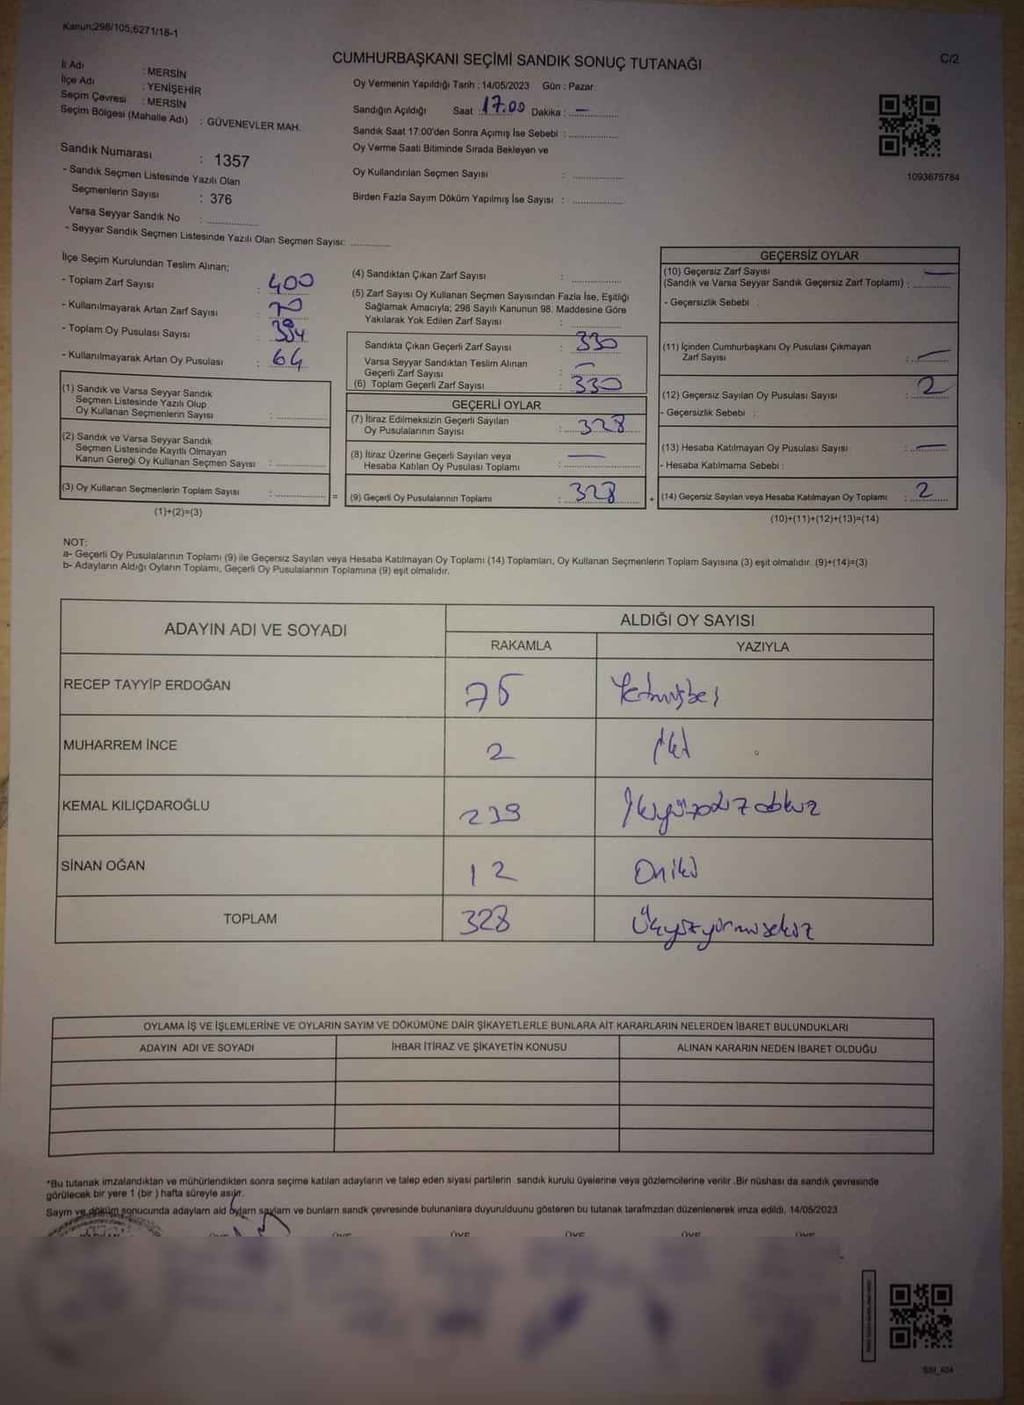 Kanun;298/105,6271/18-1
CUMHURBAŞKANI SEÇİMİ SANDIK SONUÇ TUTANAĞI
C/2
İl Adı : MERSİN
İlçe Adı : YENİŞEHİR
Seçim Çevresi : MERSİN
Seçim Bölgesi (Mahalle Adı) : GÜVENEVLER MAH.
Sandık Numarası : 1357
- Sandık Seçmen Listesinde Yazılı Olan
Seçmenlerin Sayısı : 376
Varsa Seyyar Sandık No :
- Seyyar Sandık Seçmen Listesinde Yazılı Olan Seçmen Sayısı:
Oy Vermenin Yapıldığı Tarih : 14/05/2023 Gün : Pazar
Sandığın Açıldığı Saat : 17:00 Dakika : —
Sandık Saat 17:00'den Sonra Açımış İse Sebebi :
Oy Verme Saati Bitiminde Sırada Bekleyen ve
Oy Kullandırılan Seçmen Sayısı :
Birden Fazla Sayım Döküm Yapılmış İse Sayısı :
1093675784
İlçe Seçim Kurulundan Teslim Alınan;
- Toplam Zarf Sayısı : 400
- Kullanılmayarak Artan Zarf Sayısı : 70
- Toplam Oy Pusulası Sayısı : 394
- Kullanılmayarak Artan Oy Pusulası : 64
(1) Sandık ve Varsa Seyyar Sandık
Seçmen Listesinde Yazılı Olup
Oy Kullanan Seçmenlerin Sayısı :
(2) Sandık ve Varsa Seyyar Sandık
Seçmen Listesinde Kayıtlı Olmayan
Kanun Gereği Oy Kullanan Seçmen Sayısı :
(3) Oy Kullanan Seçmenlerin Toplam Sayısı :
(1)+(2)=(3)
(4) Sandıktan Çıkan Zarf Sayısı :
(5) Zarf Sayısı Oy Kullanan Seçmen Sayısından Fazla İse, Eşitliği
Sağlamak Amacıyla; 298 Sayılı Kanunun 98. Maddesine Göre
Yakılarak Yok Edilen Zarf Sayısı :
Sandıkta Çıkan Geçerli Zarf Sayısı : 330
Varsa Seyyar Sandıktan Teslim Alınan
Geçerli Zarf Sayısı : —
(6) Toplam Geçerli Zarf Sayısı : 330
GEÇERLİ OYLAR
(7) İtiraz Edilmeksizin Geçerli Sayılan
Oy Pusulalarının Sayısı : 328
(8) İtiraz Üzerine Geçerli Sayılan veya
Hesaba Katılan Oy Pusulası Toplamı : —
= (9) Geçerli Oy Pusulalarının Toplamı : 328 +
GEÇERSİZ OYLAR
(10) Geçersiz Zarf Sayısı
(Sandık ve Varsa Seyyar Sandık Geçersiz Zarf Toplamı) : —
- Geçersizlik Sebebi :
(11) İçinden Cumhurbaşkanı Oy Pusulası Çıkmayan
Zarf Sayısı : —
(12) Geçersiz Sayılan Oy Pusulası Sayısı : 2
- Geçersizlik Sebebi :
(13) Hesaba Katılmayan Oy Pusulası Sayısı : —
- Hesaba Katılmama Sebebi :
(14) Geçersiz Sayılan veya Hesaba Katılmayan Oy Toplamı : 2
(10)+(11)+(12)+(13)=(14)
NOT:
a- Geçerli Oy Pusulalarının Toplamı (9) ile Geçersiz Sayılan veya Hesaba Katılmayan Oy Toplamı (14) Toplamları, Oy Kullanan Seçmenlerin Toplam Sayısına (3) eşit olmalıdır. (9)+(14)=(3)
b- Adayların Aldığı Oyların Toplamı, Geçerli Oy Pusulalarının Toplamına (9) eşit olmalıdır.
ADAYIN ADI VE SOYADI
ALDIĞI OY SAYISI
RAKAMLA YAZIYLA
RECEP TAYYİP ERDOĞAN 75 Yetmişbeş
MUHARREM İNCE 2 iki
KEMAL KILIÇDAROĞLU 239 İkiyüzotuzdokuz
SİNAN OĞAN 12 Oniki
TOPLAM 328 Üçyüzyirmisekiz
OYLAMA İŞ VE İŞLEMLERİNE VE OYLARIN SAYIM VE DÖKÜMÜNE DAİR ŞİKAYETLERLE BUNLARA AİT KARARLARIN NELERDEN İBARET BULUNDUKLARI
ADAYIN ADI VE SOYADI İHBAR İTİRAZ VE ŞİKAYETİN KONUSU ALINAN KARARIN NEDEN İBARET OLDUĞU
*Bu tutanak imzalandıktan ve mühürlendikten sonra seçime katılan adayların ve talep eden siyasi partilerin sandık kurulu üyelerine veya gözlemcilerine verilir .Bir nüshası da sandık çevresinde
görülecek bir yere 1 (bir ) hafta süreyle asılır.
Sayım ve döküm sonucunda adayların ald oyların sayılam ve bunların sandk çevresinde bulunanlara duyurulduunu gösteren bu tutanak tarafmzdan düzenlenerek imza edildi. 14/05/2023